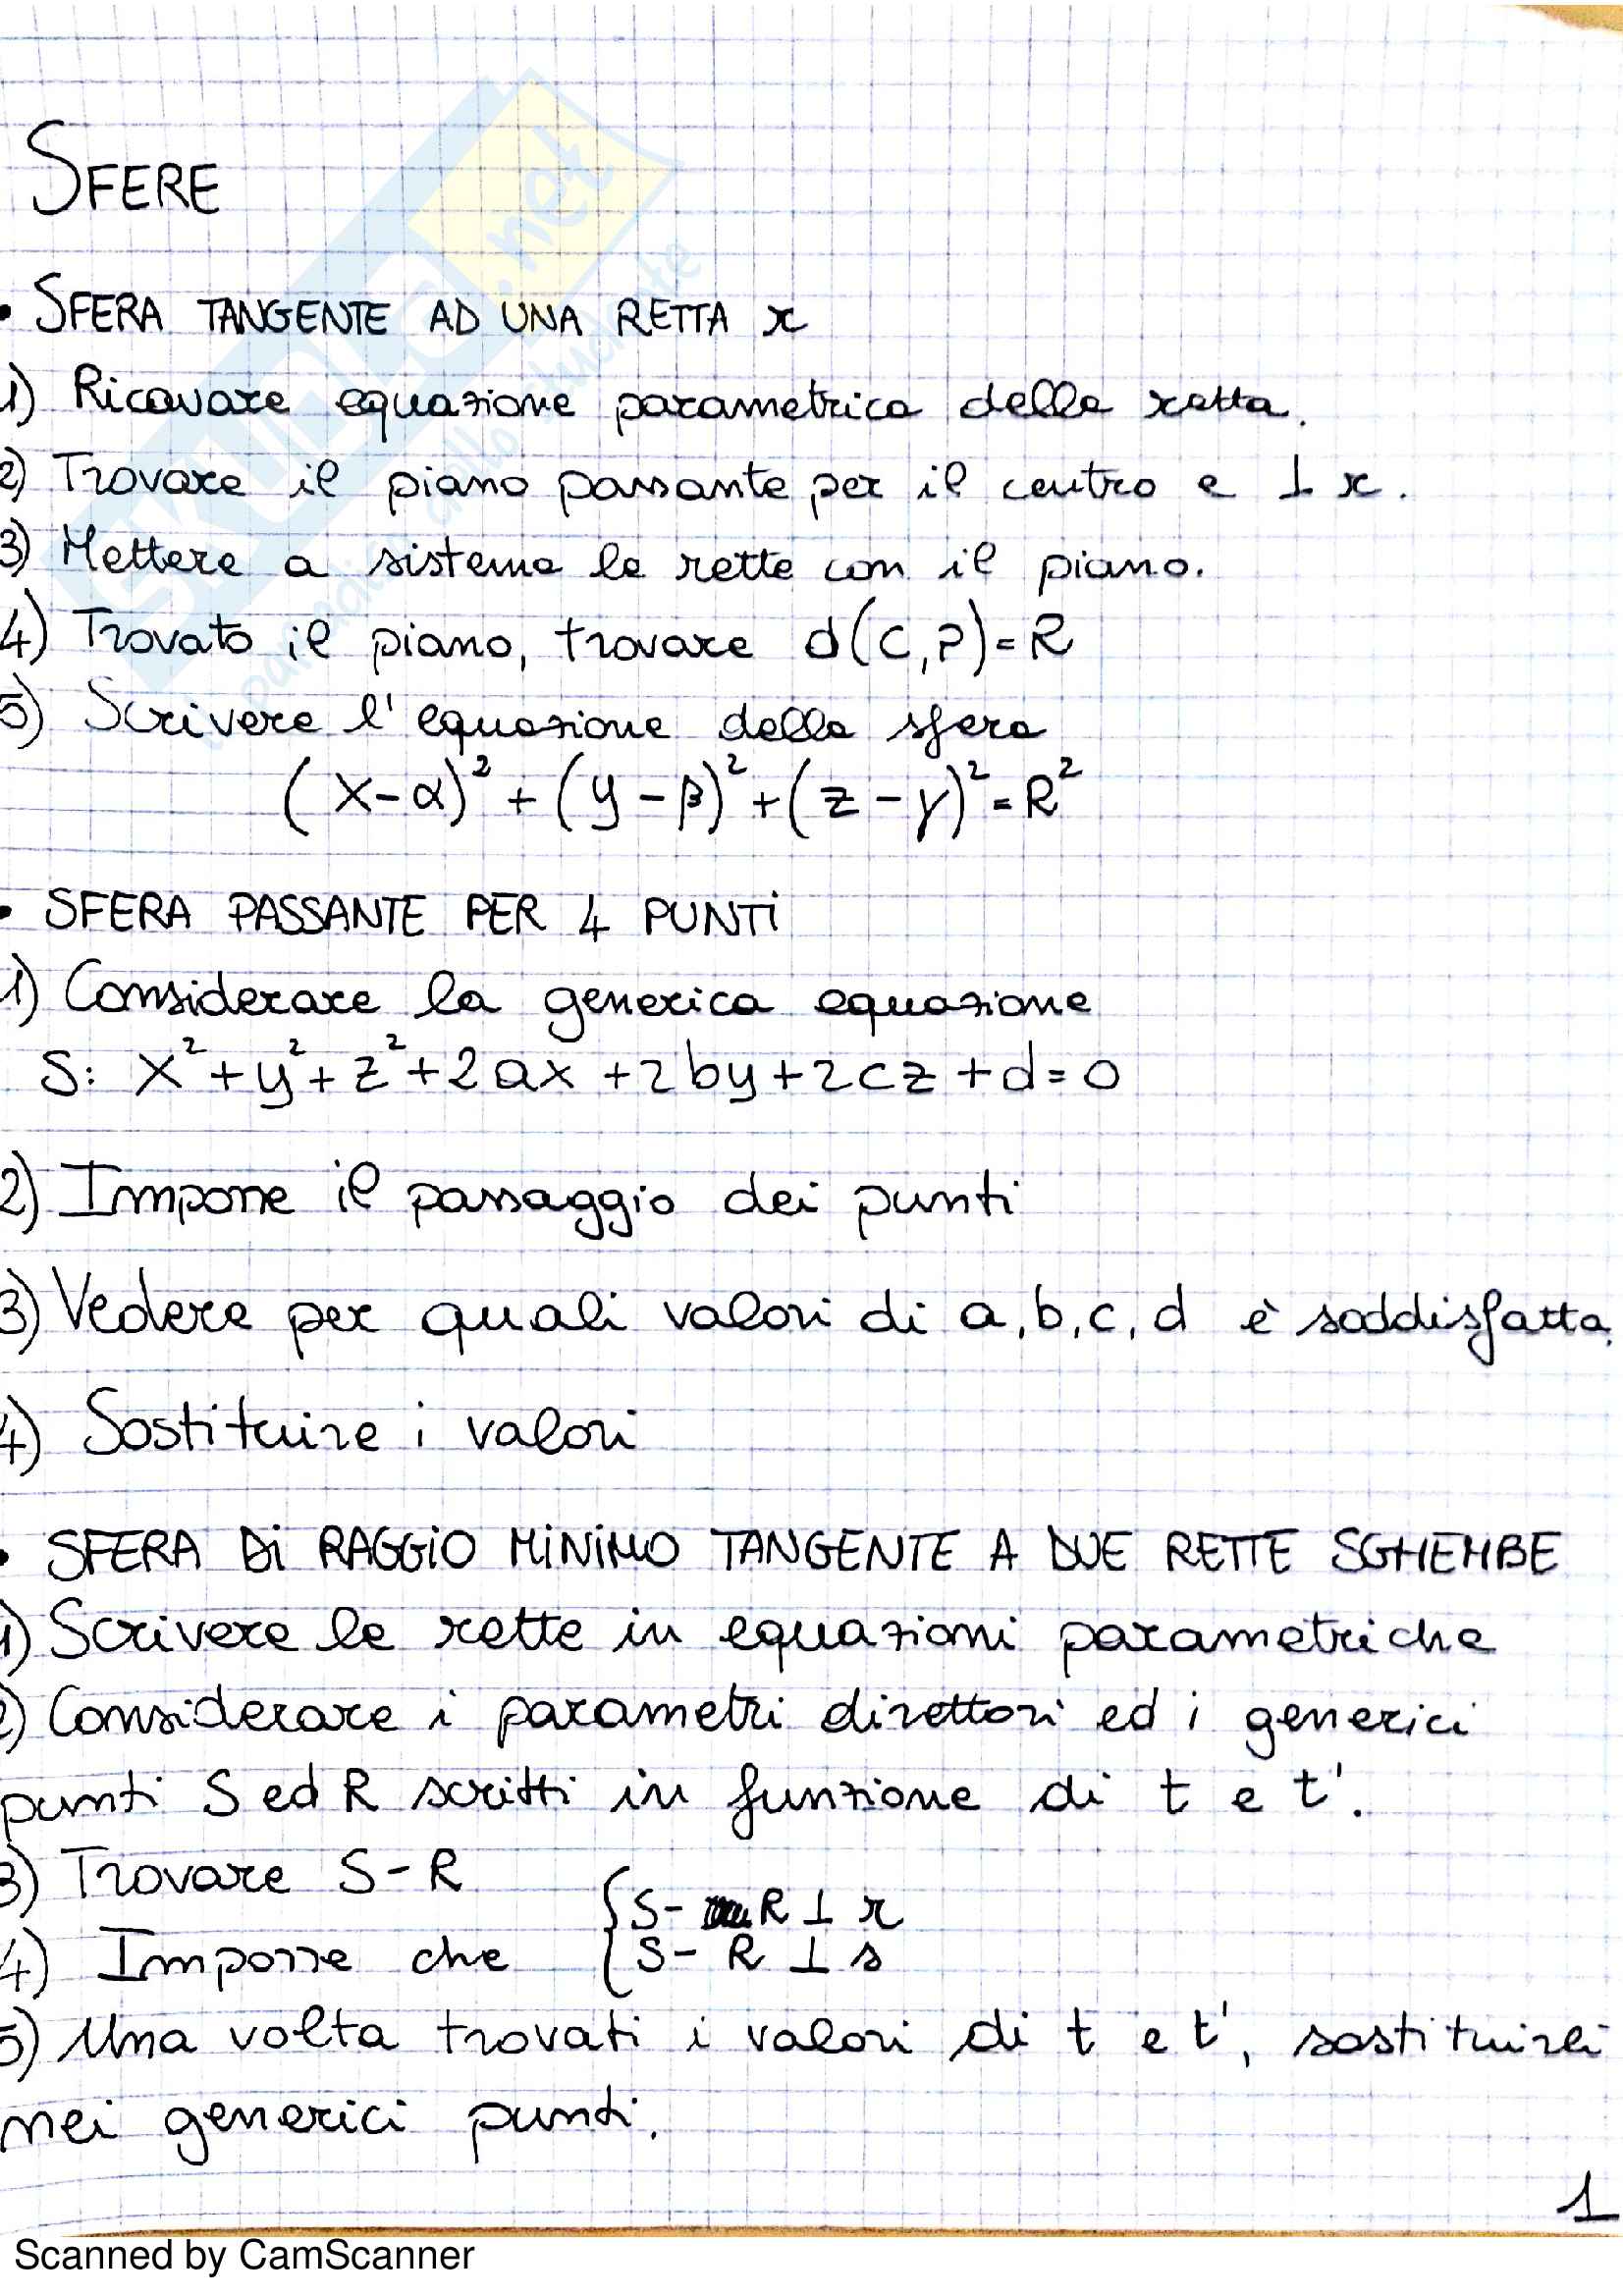 SFERE
• SFERA TANGENTE AD UNA RETTA r
1) Ricavare equazione parametrica della retta.
2) Trovare il piano passante per il centro e ⊥ r.
3) Mettere a sistema la retta con il piano.
4) Trovato il piano, trovare d(C,P)=R
5) Scrivere l'equazione della sfera
(x-α)²+(y-β)²+(z-γ)²=R²
• SFERA PASSANTE PER 4 PUNTI
1) Considerare la generica equazione
S: x²+y²+z²+2ax+2by+2cz+d=0
2) Imporre il passaggio dei punti
3) Vedere per quali valori di a,b,c,d è soddisfatta.
4) Sostituire i valori
• SFERA DI RAGGIO MINIMO TANGENTE A DUE RETTE SGHEMBE
1) Scrivere le rette in equazioni parametriche
2) Considerare i parametri direttori ed i generici
punti S ed R scritti in funzione di t e t'.
3) Trovare S-R
{S- R ⊥ r
4) Imporre che {S- R ⊥ s
5) Una volta trovati i valori di t e t', sostituirli
nei generici punti.
1
Scanned by CamScanner